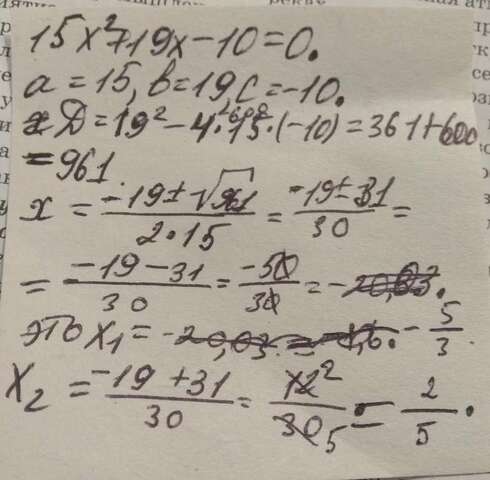 15x²+19x-10=0.
a=15, b=19, c=-10.
D=19²-4·15·(-10)=361+600
=961.
x = (-19±√961)/(2·15) = (-19±31)/30 =
= (-19-31)/30 = -50/30 = -
это x₁ = - 5/3.
x₂ = (-19+31)/30 = 12/30 = 2/5.